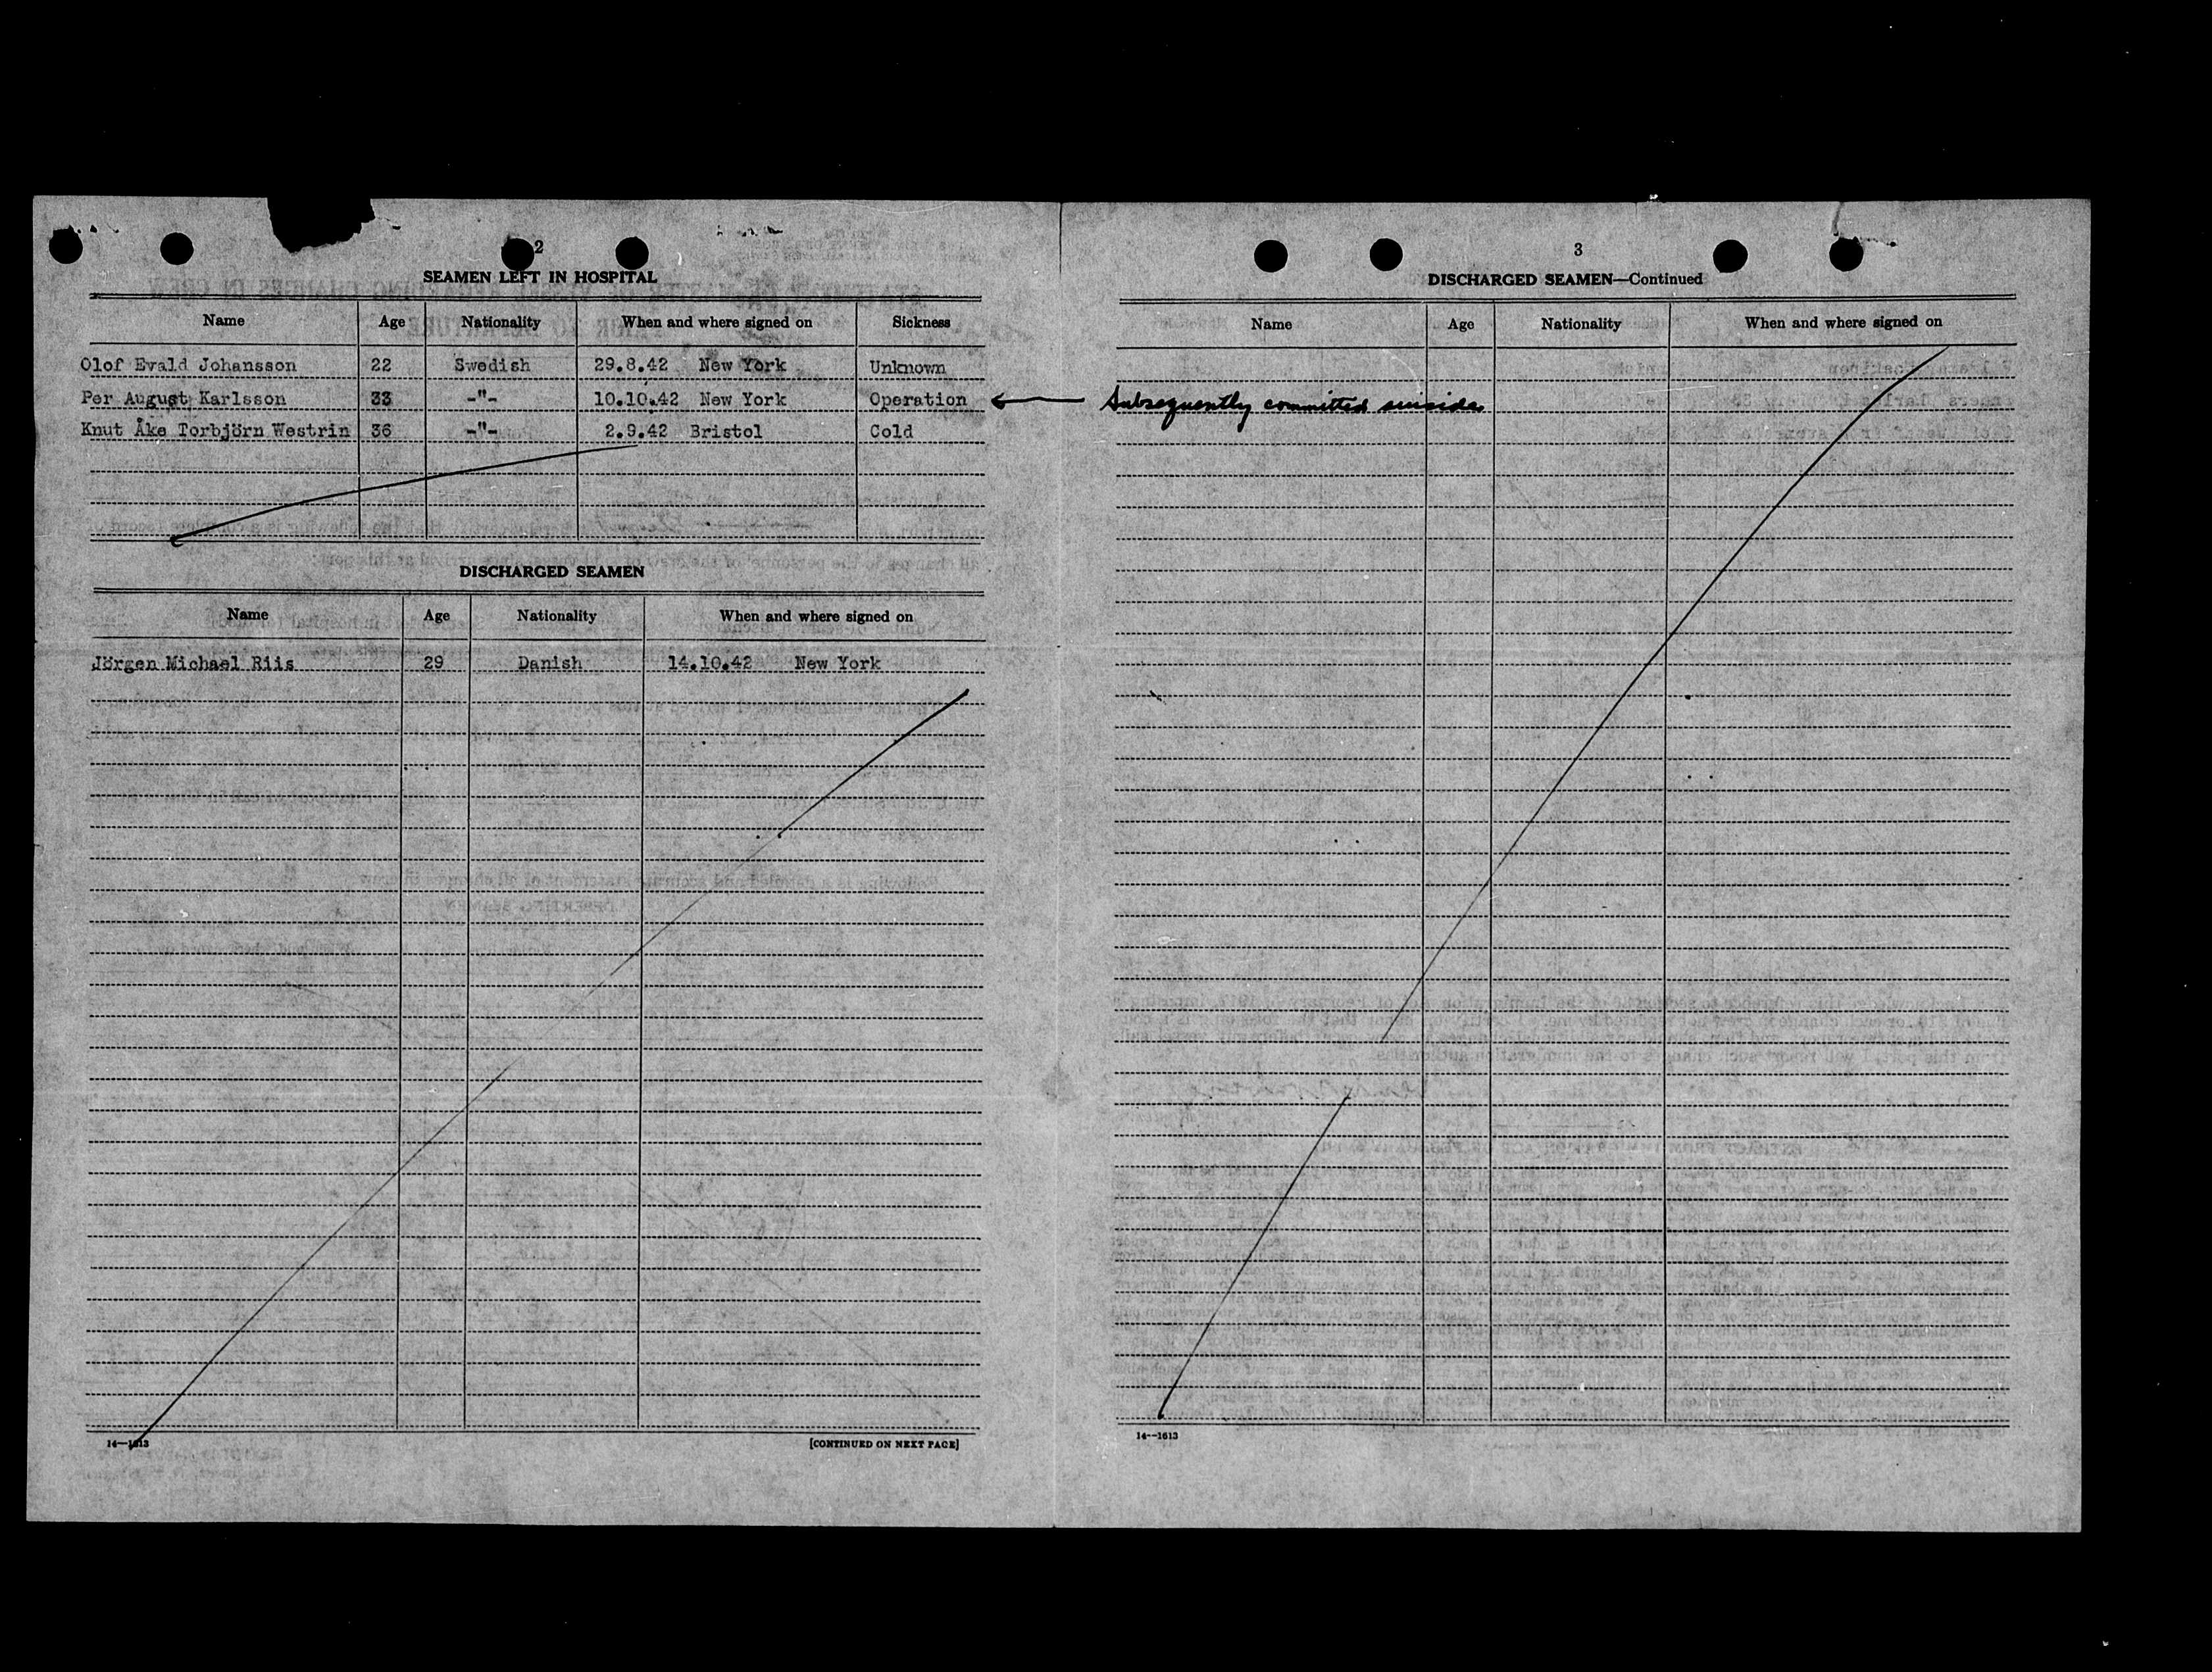 2
SEAMEN LEFT IN HOSPITAL
Name Age Nationality When and where signed on Sickness
Olof Evald Johansson 22 Swedish 29.8.42 New York Unknown
Per August Karlsson 33 -"- 10.10.42 New York Operation
Knut Åke Torbjörn Westrin 36 -"- 2.9.42 Bristol Cold
DISCHARGED SEAMEN
Name Age Nationality When and where signed on
Jörgen Michael Riis 29 Danish 14.10.42 New York
14—1613
[CONTINUED ON NEXT PAGE]
3
DISCHARGED SEAMEN—Continued
Name Age Nationality When and where signed on
Subsequently committed suicide
14—1613